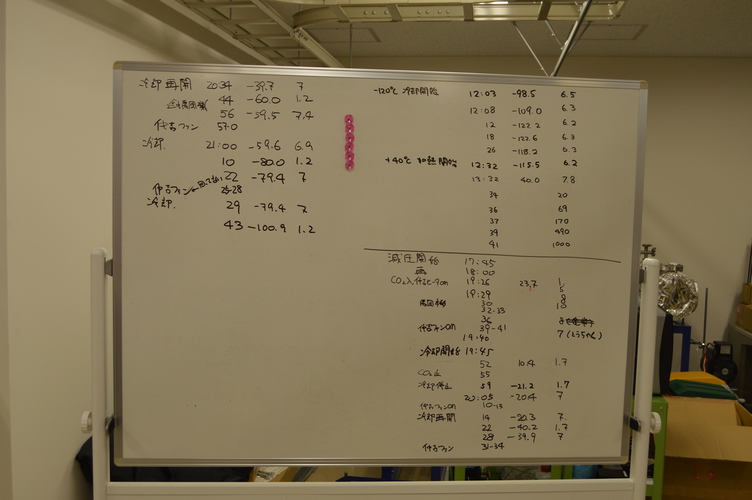 冷却再開 20:34 -39.7 7
44 -60.0 1.2
56 -59.5 7.4
ファン 57.0
冷却 21:00 -59.6 6.9
10 -80.0 1.2
22 -79.4 7
ファン 28
冷却 29 -79.4 7
43 -100.9 1.2
-120℃ 冷却開始 12:03 -98.5 6.5
12:08 -109.0 6.3
12 -122.2 6.2
18 -122.6 6.3
26 -118.2 6.3
+40℃ 加熱開始 12:32 -115.5 6.2
13:32 40.0 7.8
34 20
36 69
37 170
39 490
41 1000
減圧開始 17:45
18:00
CO2入 19:26 23.7 1
19:29 5
30 8
32.33 10
36
ファンon 39-41 7
19:40
冷却開始 19:45
52 10.4 1.7
CO2止 55
冷却停止 59 -21.2 1.7
20:05 -20.4 7
ファンon 10-13
冷却再開 14 -20.3 7
22 -40.2 1.7
28 -39.9 7
ファン 31-34